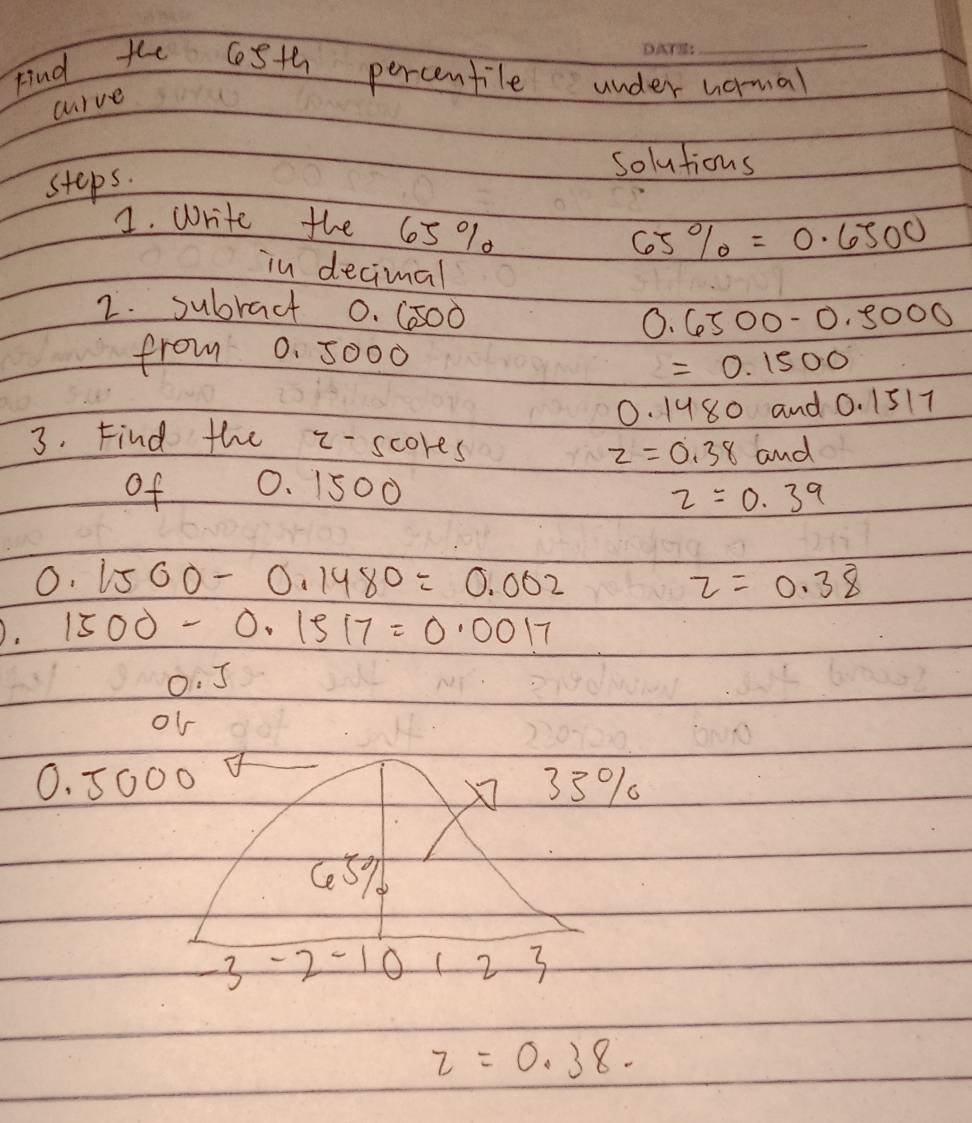 DATE:
Find the 65th percentile under normal
curve
Solutions
steps.
1. Write the 65% 65% = 0.6500
in decimal
2. subract 0.6500 0.6500 - 0.5000
from 0.5000 = 0.1500
0.1480 and 0.1517
3. Find the z-scores z = 0.38 and
of 0.1500 z = 0.39
0.1500 - 0.1480 = 0.002 z = 0.38
0.1500 - 0.1517 = 0.0017
0.5
or
0.5000 35%
65%
-3 -2 -1 0 1 2 3
z = 0.38.